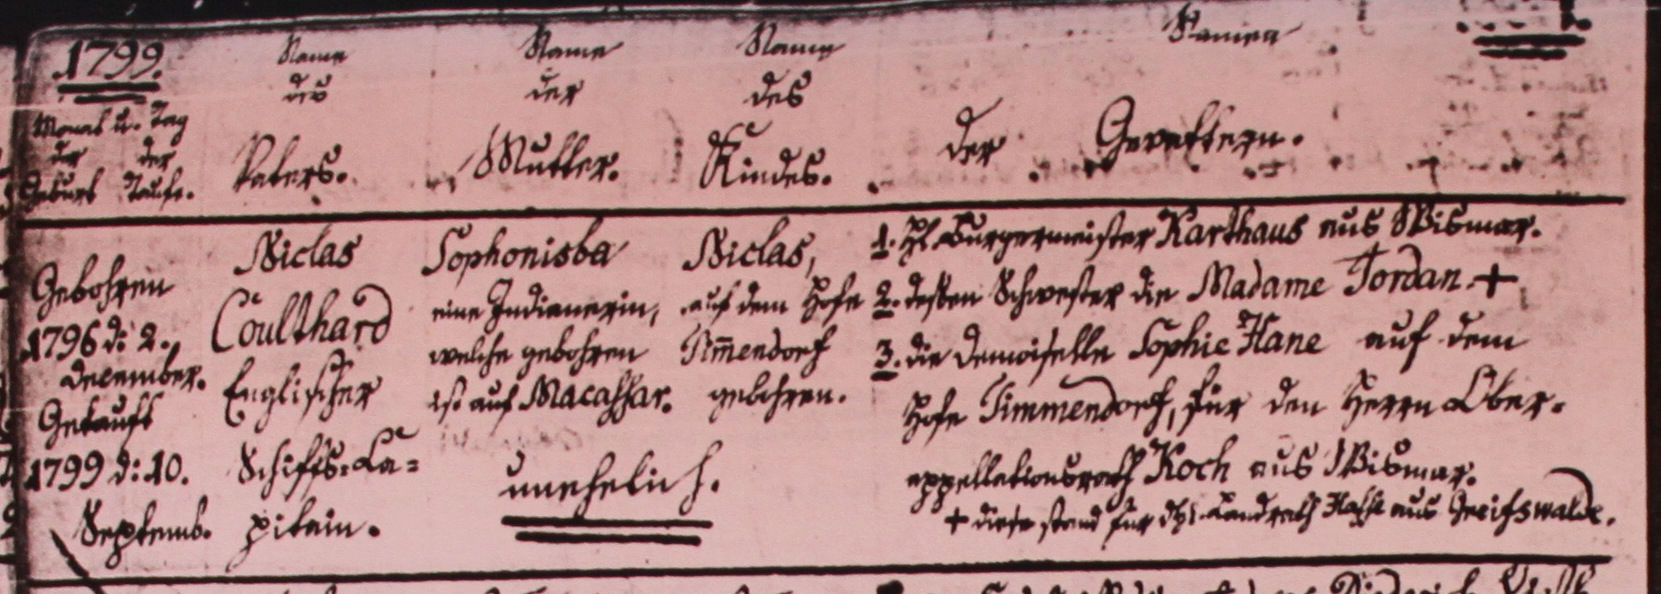 1799.
Name
des
Vaters.
Name
der
Mutter.
Name
des
Kindes.
Namen
der Gevattern.
Monat u. Tag
der der
Geburt Taufe.
Gebohren
1796 d: 2.
December.
Getauft
1799 d: 10.
Septemb.
Niclas
Coulthard
Englischer
Schiffs-Ca=
pitain.
Sophonisba
eine Indianerin,
welche gebohren
ist auf Macassar.
unehelich.
Niclas,
auf dem Hofe
Tim̄endorf
gebohren.
1. H. Burgermeister Karthaus aus Wismar.
2. dessen Schwester die Madame Jordan. +
3. die Demoiselle Sophie Hane auf dem
Hofe Timmendorf, für den Herrn Ober-
appellationsrath Koch aus Wismar.
+ diese stand für Landrath aus Greifswalde.